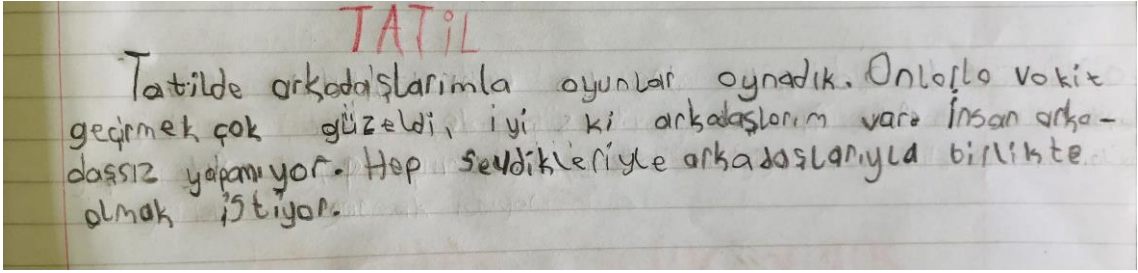 TATİL
Tatilde arkadaşlarımla oyunlar oynadık. Onlarla vakit
geçirmek çok güzeldi, iyi ki arkadaşlarım var. İnsan arka-
dassız yapamıyor. Hep sevdikleriyle arkadaşlarıyla birlikte
olmak istiyor.